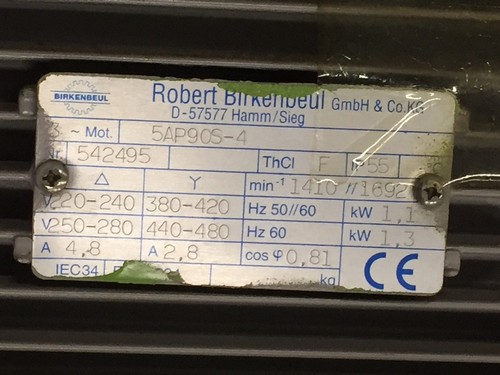 BIRKENBEUL
Robert Birkenbeul GmbH & Co.KG
D-57577 Hamm/Sieg
3 ~ Mot. 5AP90S-4
542495 ThCl F 55
Δ Y min⁻¹ 1410//1692
V220-240 380-420 Hz 50//60 kW 1,1
V250-280 440-480 Hz 60 kW 1,3
A 4,8 A 2,8 cos φ 0,81
IEC34 kg CE